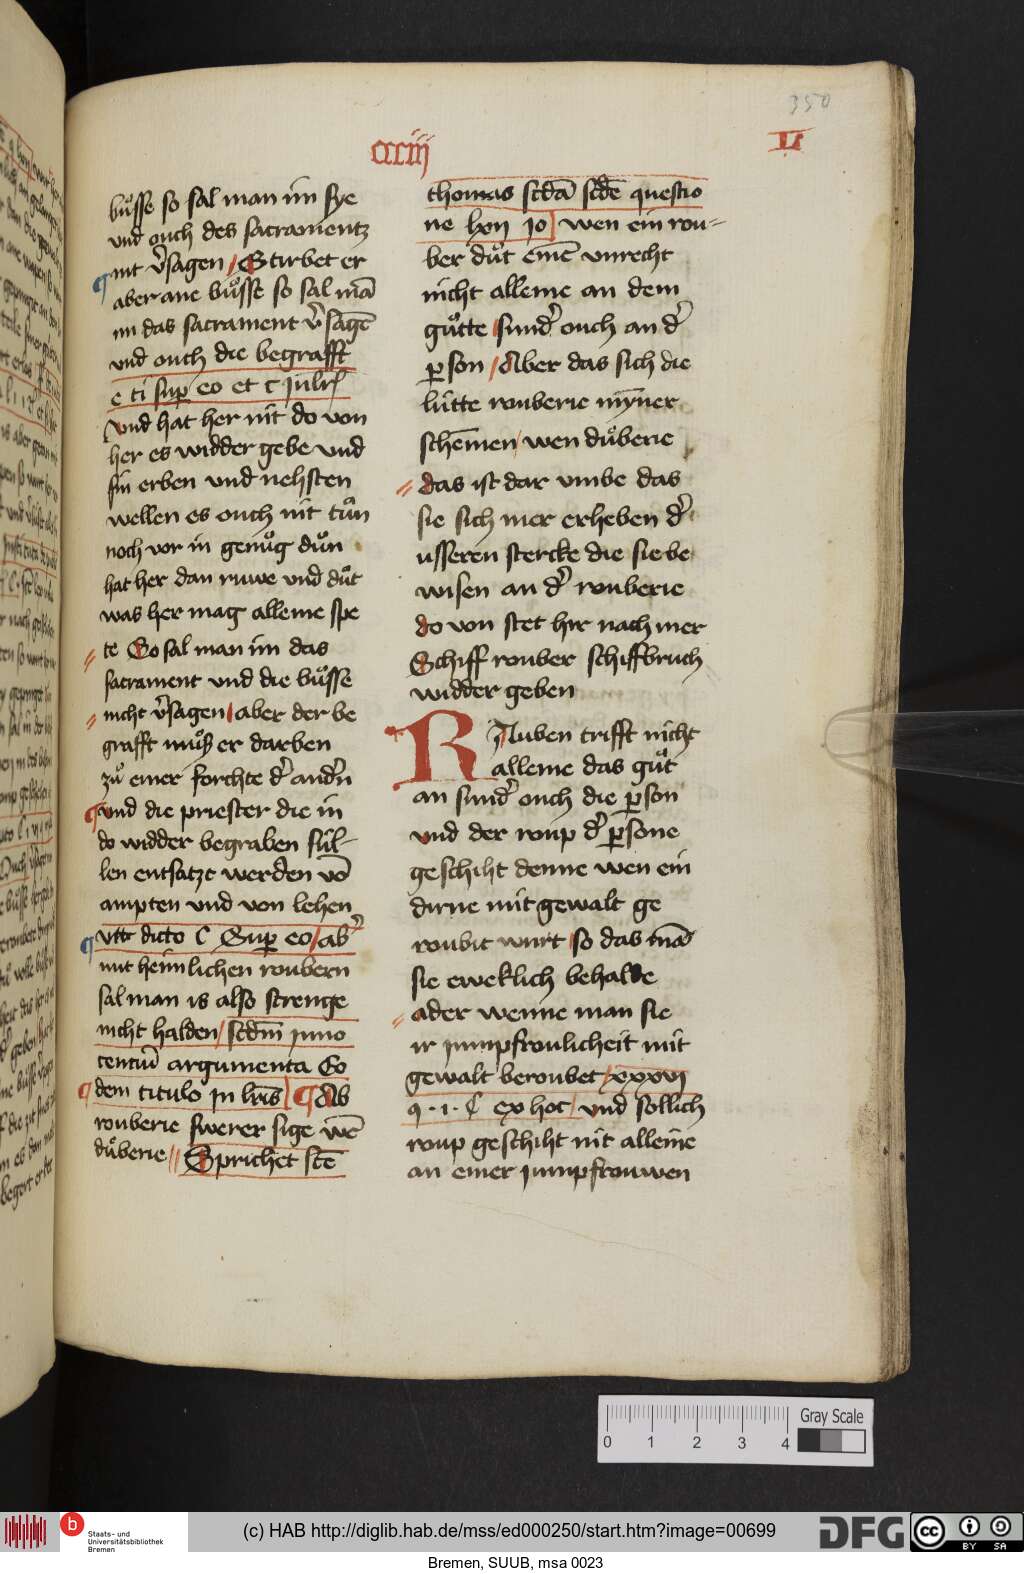 350
ccciij
L
buͦsse so sal man im sye
vnd ouch des sacramentz
nit v̄sagen / Stirbet er
aber ane buͦsse so sal mā
im das sacrament v̄sagē
vnd ouch die begrafft
e ti sup eo et c
vnd hat her nit do von
her es widder gebe vnd
sin erben vnd nehsten
wellen es ouch nit tuͦn
noch vor in genuͦg duͦn
hat her dan ruwe vnd duͦt
was her mag alleine spe
te So sal man im das
sacrament vnd die buͦsse
nicht v̄sagen / aber der be
grafft muͦß er darben
zuͦ einer forchte d̄ and̄n
vnd die priester die in
do widder begraben sül-
len entsatzt werden vō
ampten vnd von lehen
vtt dicto c Sup eo / ab̄
mit heimlichen roubern
sal man is also strenge
nicht halden / scdm̄ inno
tentiū argumenta Eo
dem titulo in / Ab
rouberie swerer sige wē
duͦberie // Sprichet scē
thomas scdā scdē questio
ne lxvj / wen ein rou-
ber duͦt einē vnrecht
nicht alleine an dem
guͦtte / sund̄ ouch an d̄
p̱son / Aber das sich die
lütte rouberie mȳner
schēmen / wen duͦberie
das ist dar vmbe das
sie sich mer erheben d̄
usseren stercke die sie be
wisen an d̄ rouberie
do von stet hir nach mer
Schiff rouber schiffbruch
widder geben
RAuben trifft nicht
alleine das guͦt
an sund̄ ouch die p̱son
vnd der roup d̄ p̱sone
geschiht denne wen ein
dirne mit gewalt ge
roubit wurt / so das mā
sie eweklich behalde
ader wenne man sie
ir jumpfroulicheit mit
gewalt beroubet / xxxvj
q · 1 · C ex hoc / vnd sollich
roup geschiht nit alleine
an einer jumpfrouwen
0 1 2 3 4
Gray Scale
b Staats- und
Universitätsbibliothek
Bremen
(c) HAB http://diglib.hab.de/mss/ed000250/start.htm?image=00699
DFG
cc BY SA
Bremen, SUUB, msa 0023